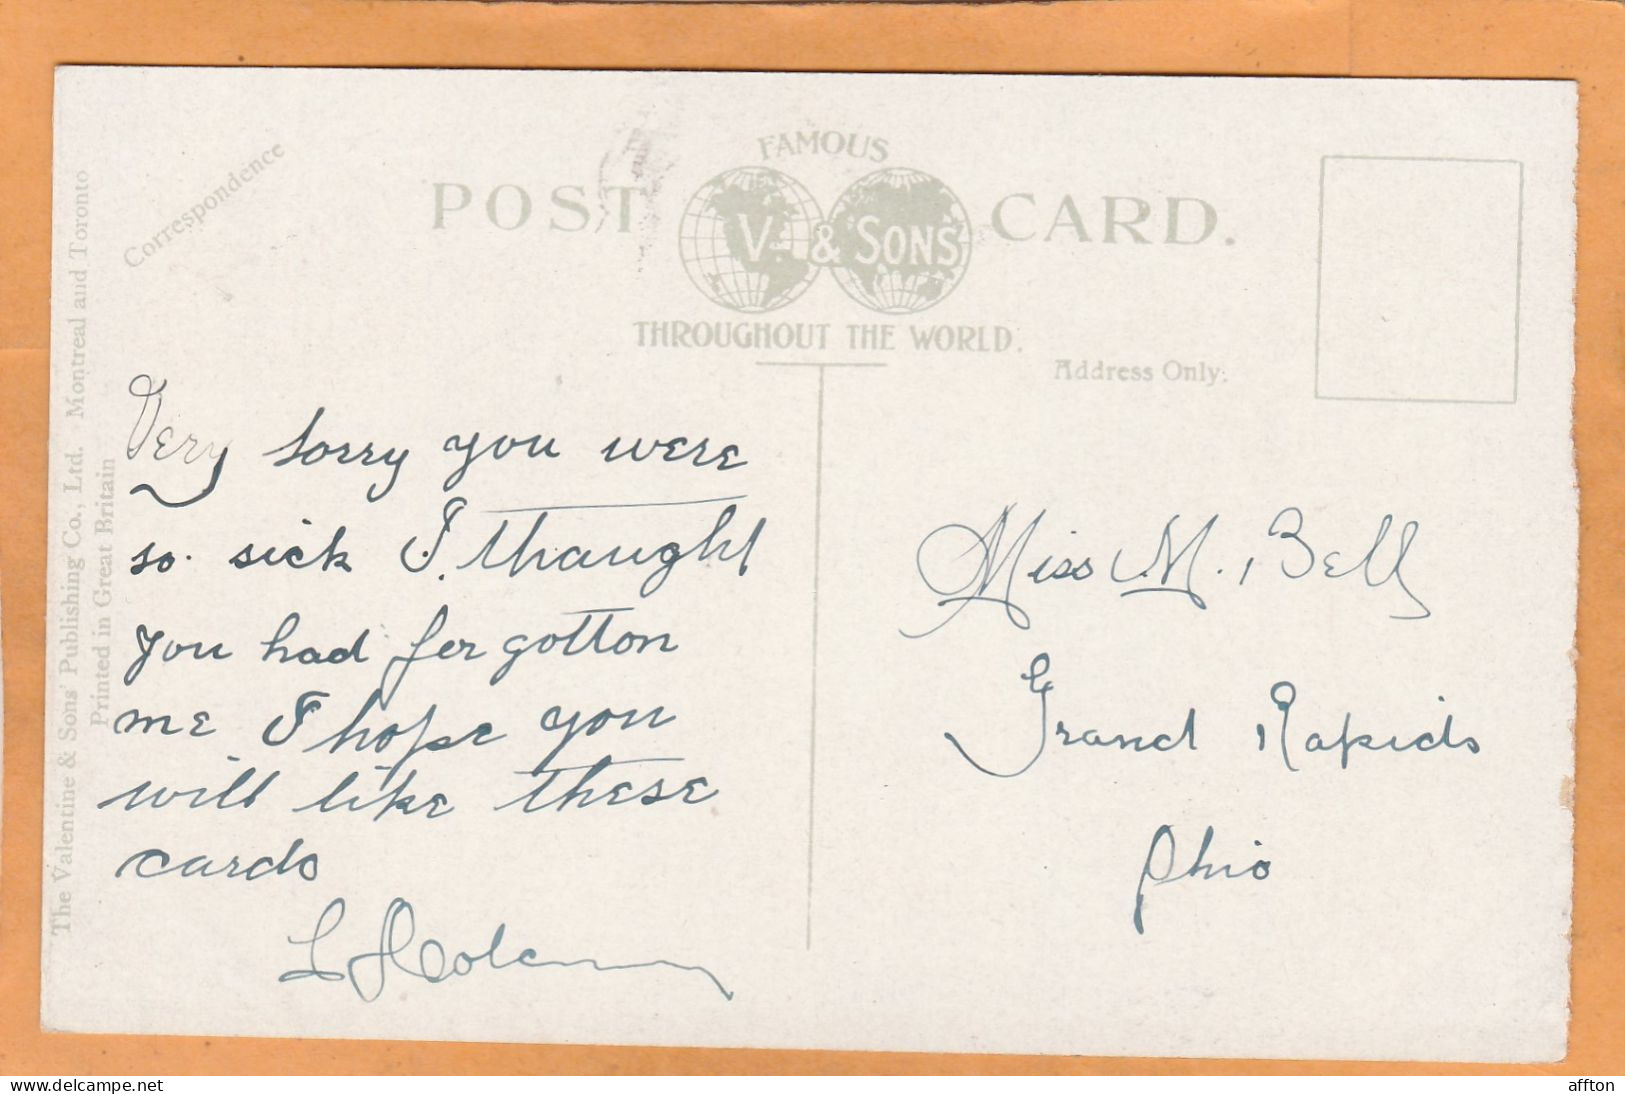 Correspondence
FAMOUS
POST CARD.
V. & SONS
THROUGHOUT THE WORLD.
Address Only.
The Valentine & Sons' Publishing Co., Ltd. Montreal and Toronto
Printed in Great Britain
Very sorry you were
so sick I thaught
you had for gotton
me I hope you
will like these
cards
Miss M. Bell
Grand Rapids
Ohio
affton